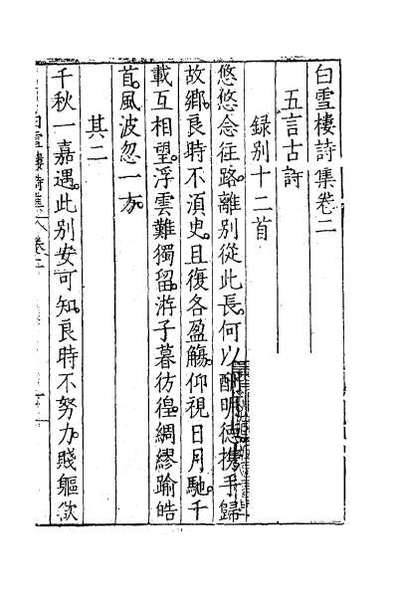 白雪樓詩集卷二
五言古詩
録别十二首
悠悠念往路離别從此長何以酬明德携手歸
故鄉良時不湏史且復各盈觴仰視日月馳千
載互相望浮雲難獨留游子暮彷徨綢繆踰皓
首風波忽一方
其二
千秋一嘉遇此别安可知良時不努力賤軀欻
白雪樓詩集 卷二